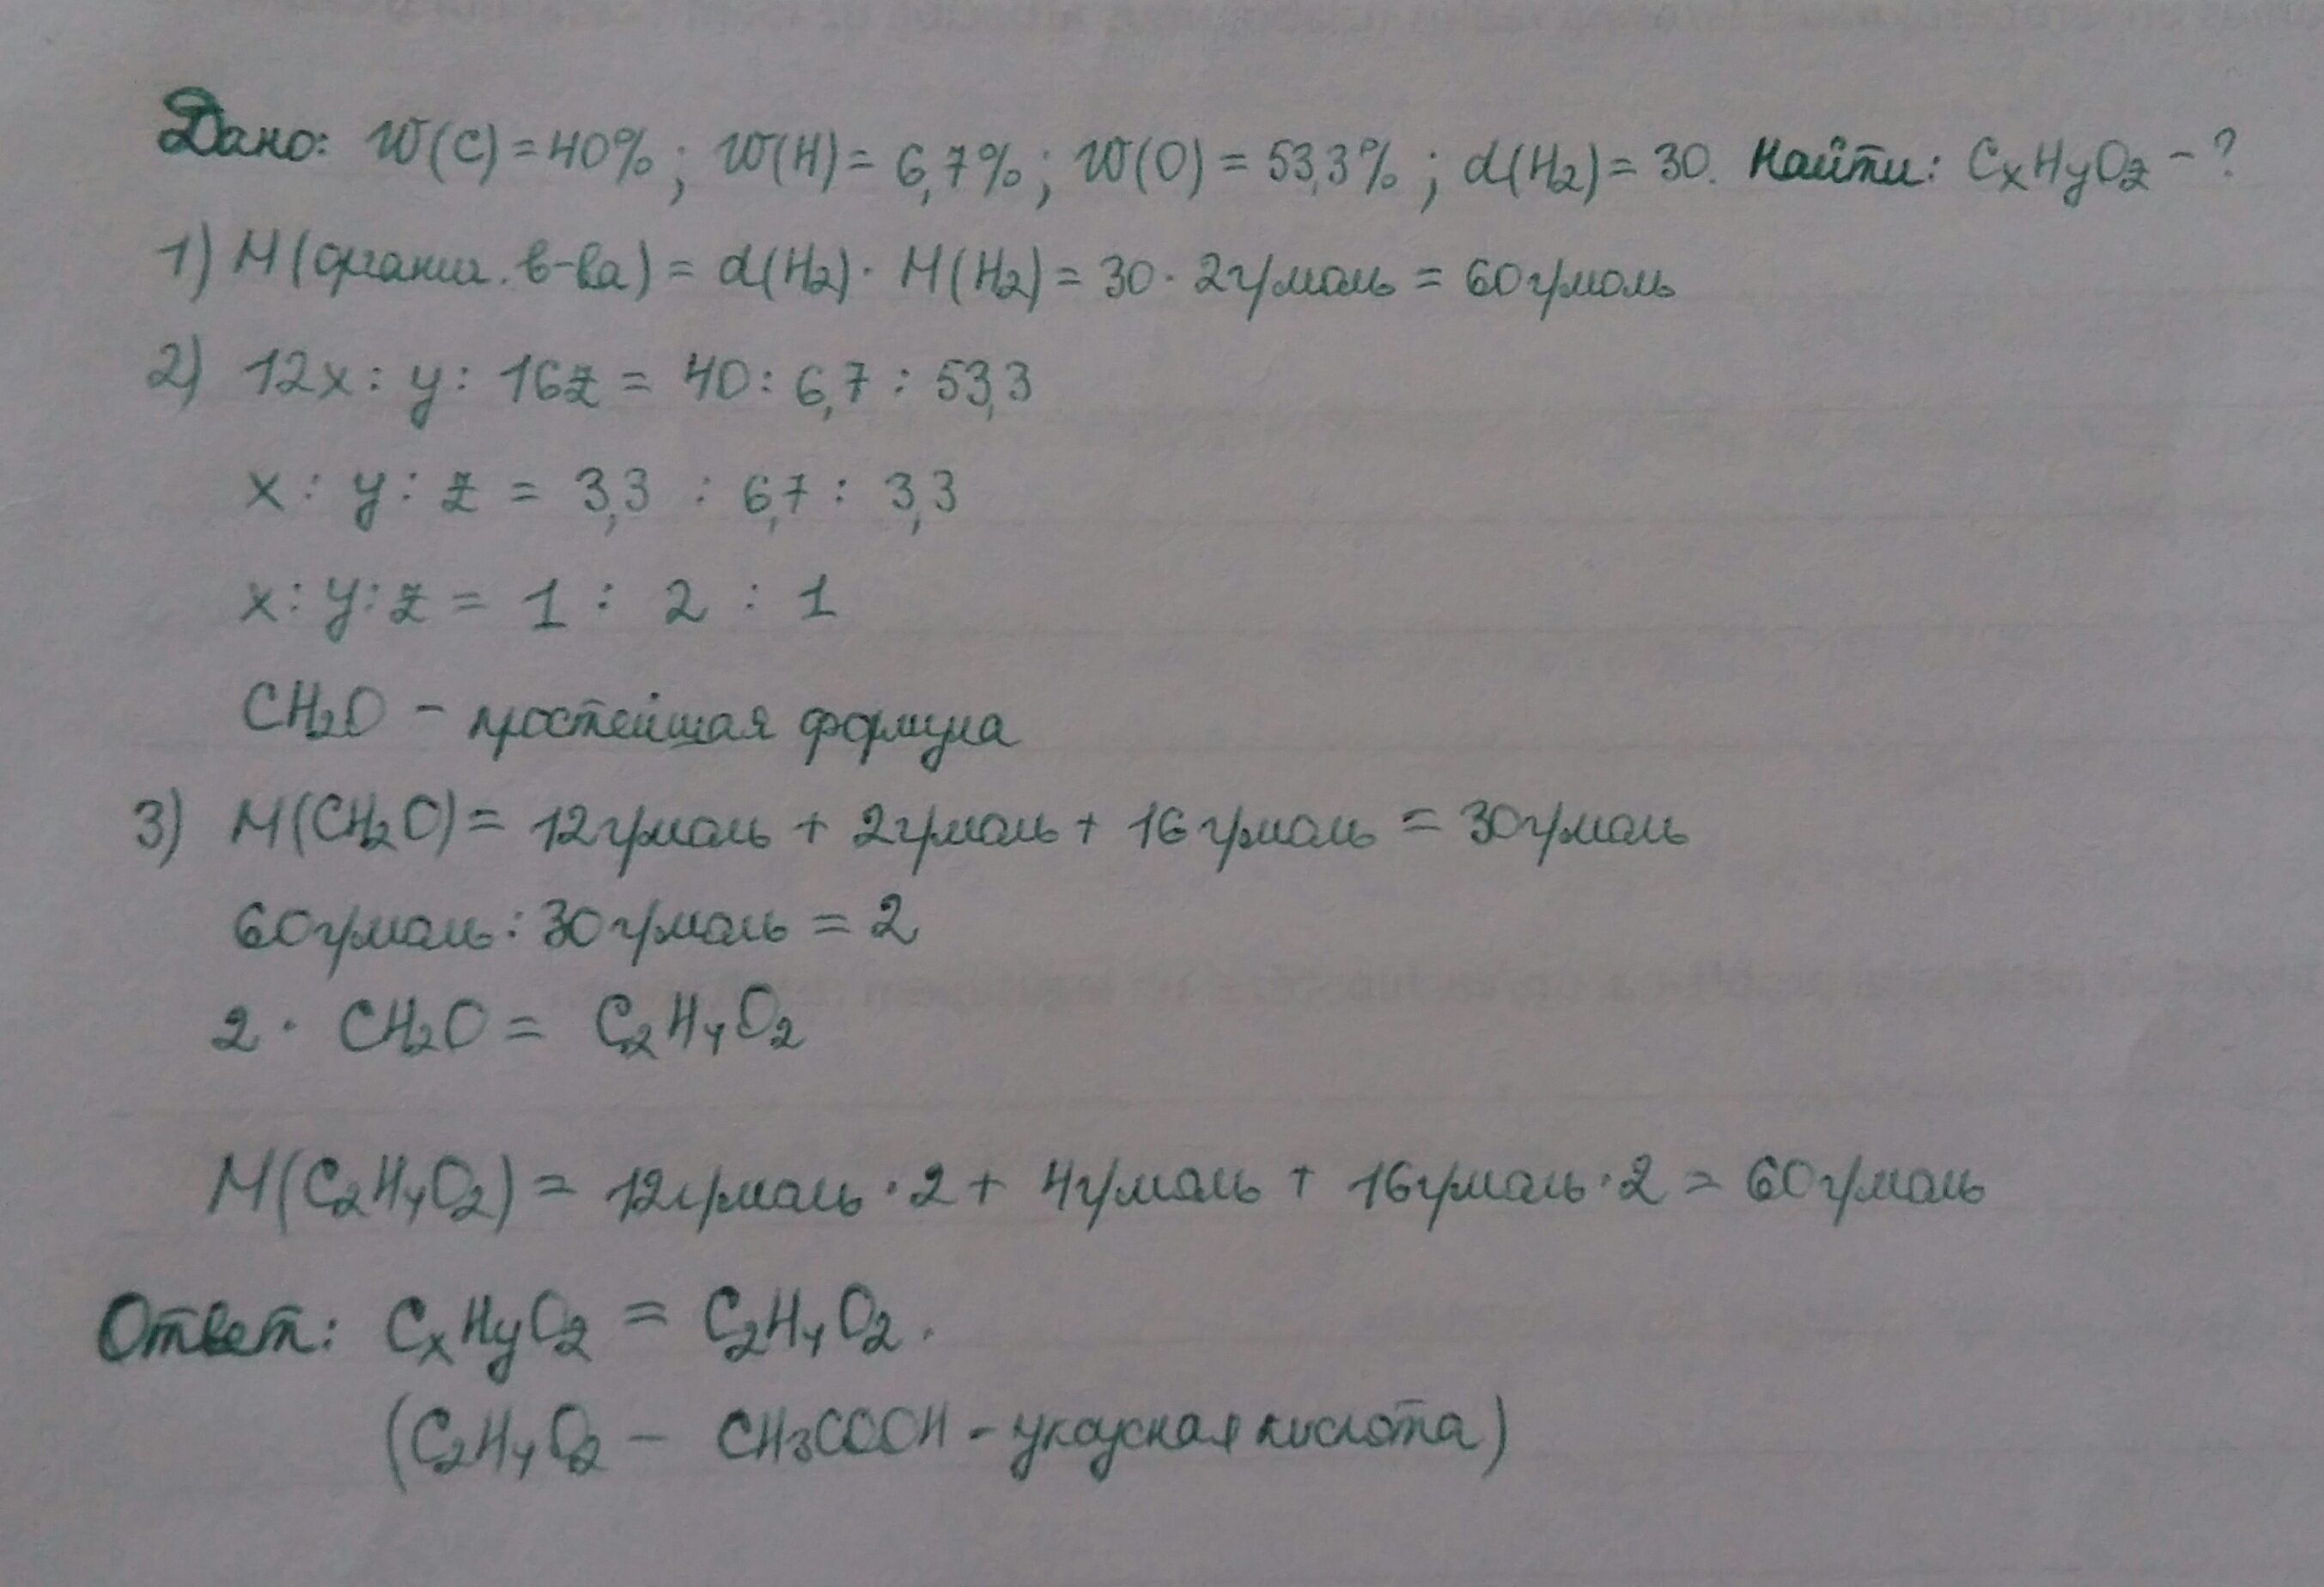 Дано: W(C)=40%; W(H)=6,7%; W(O)=53,3%; d(H₂)=30. Найти: CₓHᵧO𝓏 - ?
1) M(органич. в-ва) = d(H₂) · M(H₂) = 30 · 2г/моль = 60г/моль
2) 12x : y : 16z = 40 : 6,7 : 53,3
x : y : z = 3,3 : 6,7 : 3,3
x : y : z = 1 : 2 : 1
CH₂O - простейшая формула
3) M(CH₂O) = 12г/моль + 2г/моль + 16г/моль = 30г/моль
60г/моль : 30г/моль = 2
2 · CH₂O = C₂H₄O₂
M(C₂H₄O₂) = 12г/моль · 2 + 4г/моль + 16г/моль · 2 = 60г/моль
Ответ: CₓHᵧO𝓏 = C₂H₄O₂.
(C₂H₄O₂ - CH₃COOH - уксусная кислота)